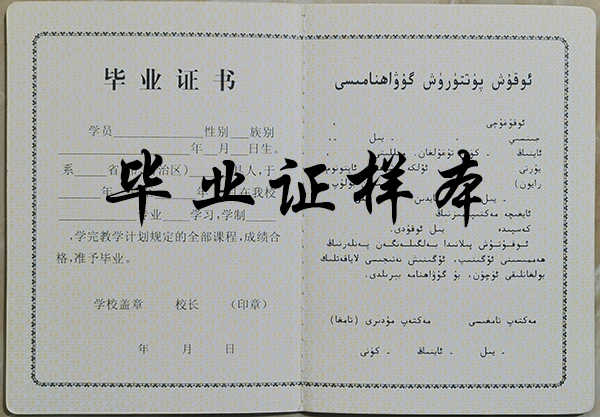 毕业证书
学员 性别 族别
年 月 日生。
系 省 治区） 人，于
年 在我校
专业 学习，学制
，学完教学计划规定的全部课程，成绩合
格，准予毕业。
学校盖章 校长 （印章）
年 月 日
毕业证样本
ئوقۇش پۈتتۈرۈش گۇۋاھنامىسى
ئوقۇغۇچى
جىنسىي . يىل . .
ئاينىڭ
يۇرتى ئۆلكە
رايون)
. يىل
ئايغىچە مەكتىپىمىزنىڭ
كەسپىدە يىل ئوقۇدى.
ئوقۇتۇش پىلانىدا بەلگىلەنگەن پەنلەرنىڭ
ھەممىسىنى ئۆگىنىپ، ئۆگىنىش نەتىجىسى لاياقەتلىك
بولغانلىقى ئۈچۈن، بۇ گۇۋاھنامە بېرىلدى.
مەكتەپ تامغىسى مەكتەپ مۇدىرى (تامغا)
. يىل . ئاينىڭ . كۈنى